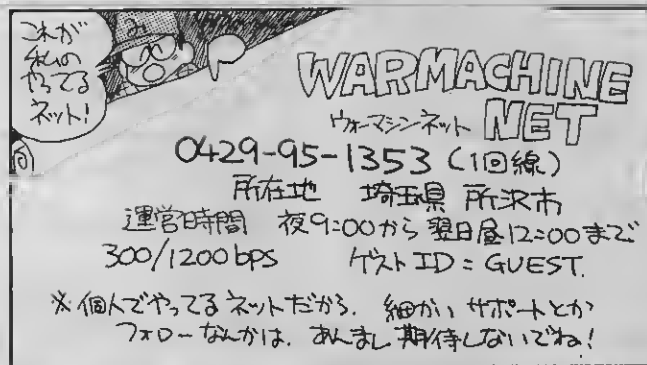 これが
私の
やってる
ネット!
WARMACHINE
ウォーマシンネット NET
0429-95-1353 (1回線)
所在地 埼玉県 所沢市
運営時間 夜9:00から 翌日昼12:00まで
300/1200bps ゲストID=GUEST.
※個人でやってるネットだから、細かいサポートとか
フォローなんかは、あんまし期待しないでね!